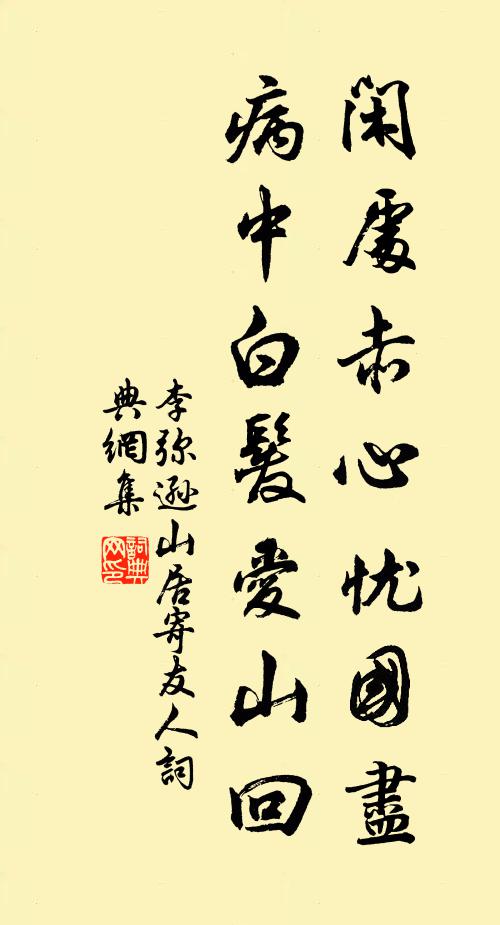 閑處赤心忧國盡
病中白髮愛山回
李弥遜山居寄友人詞
典網集
詞典網印